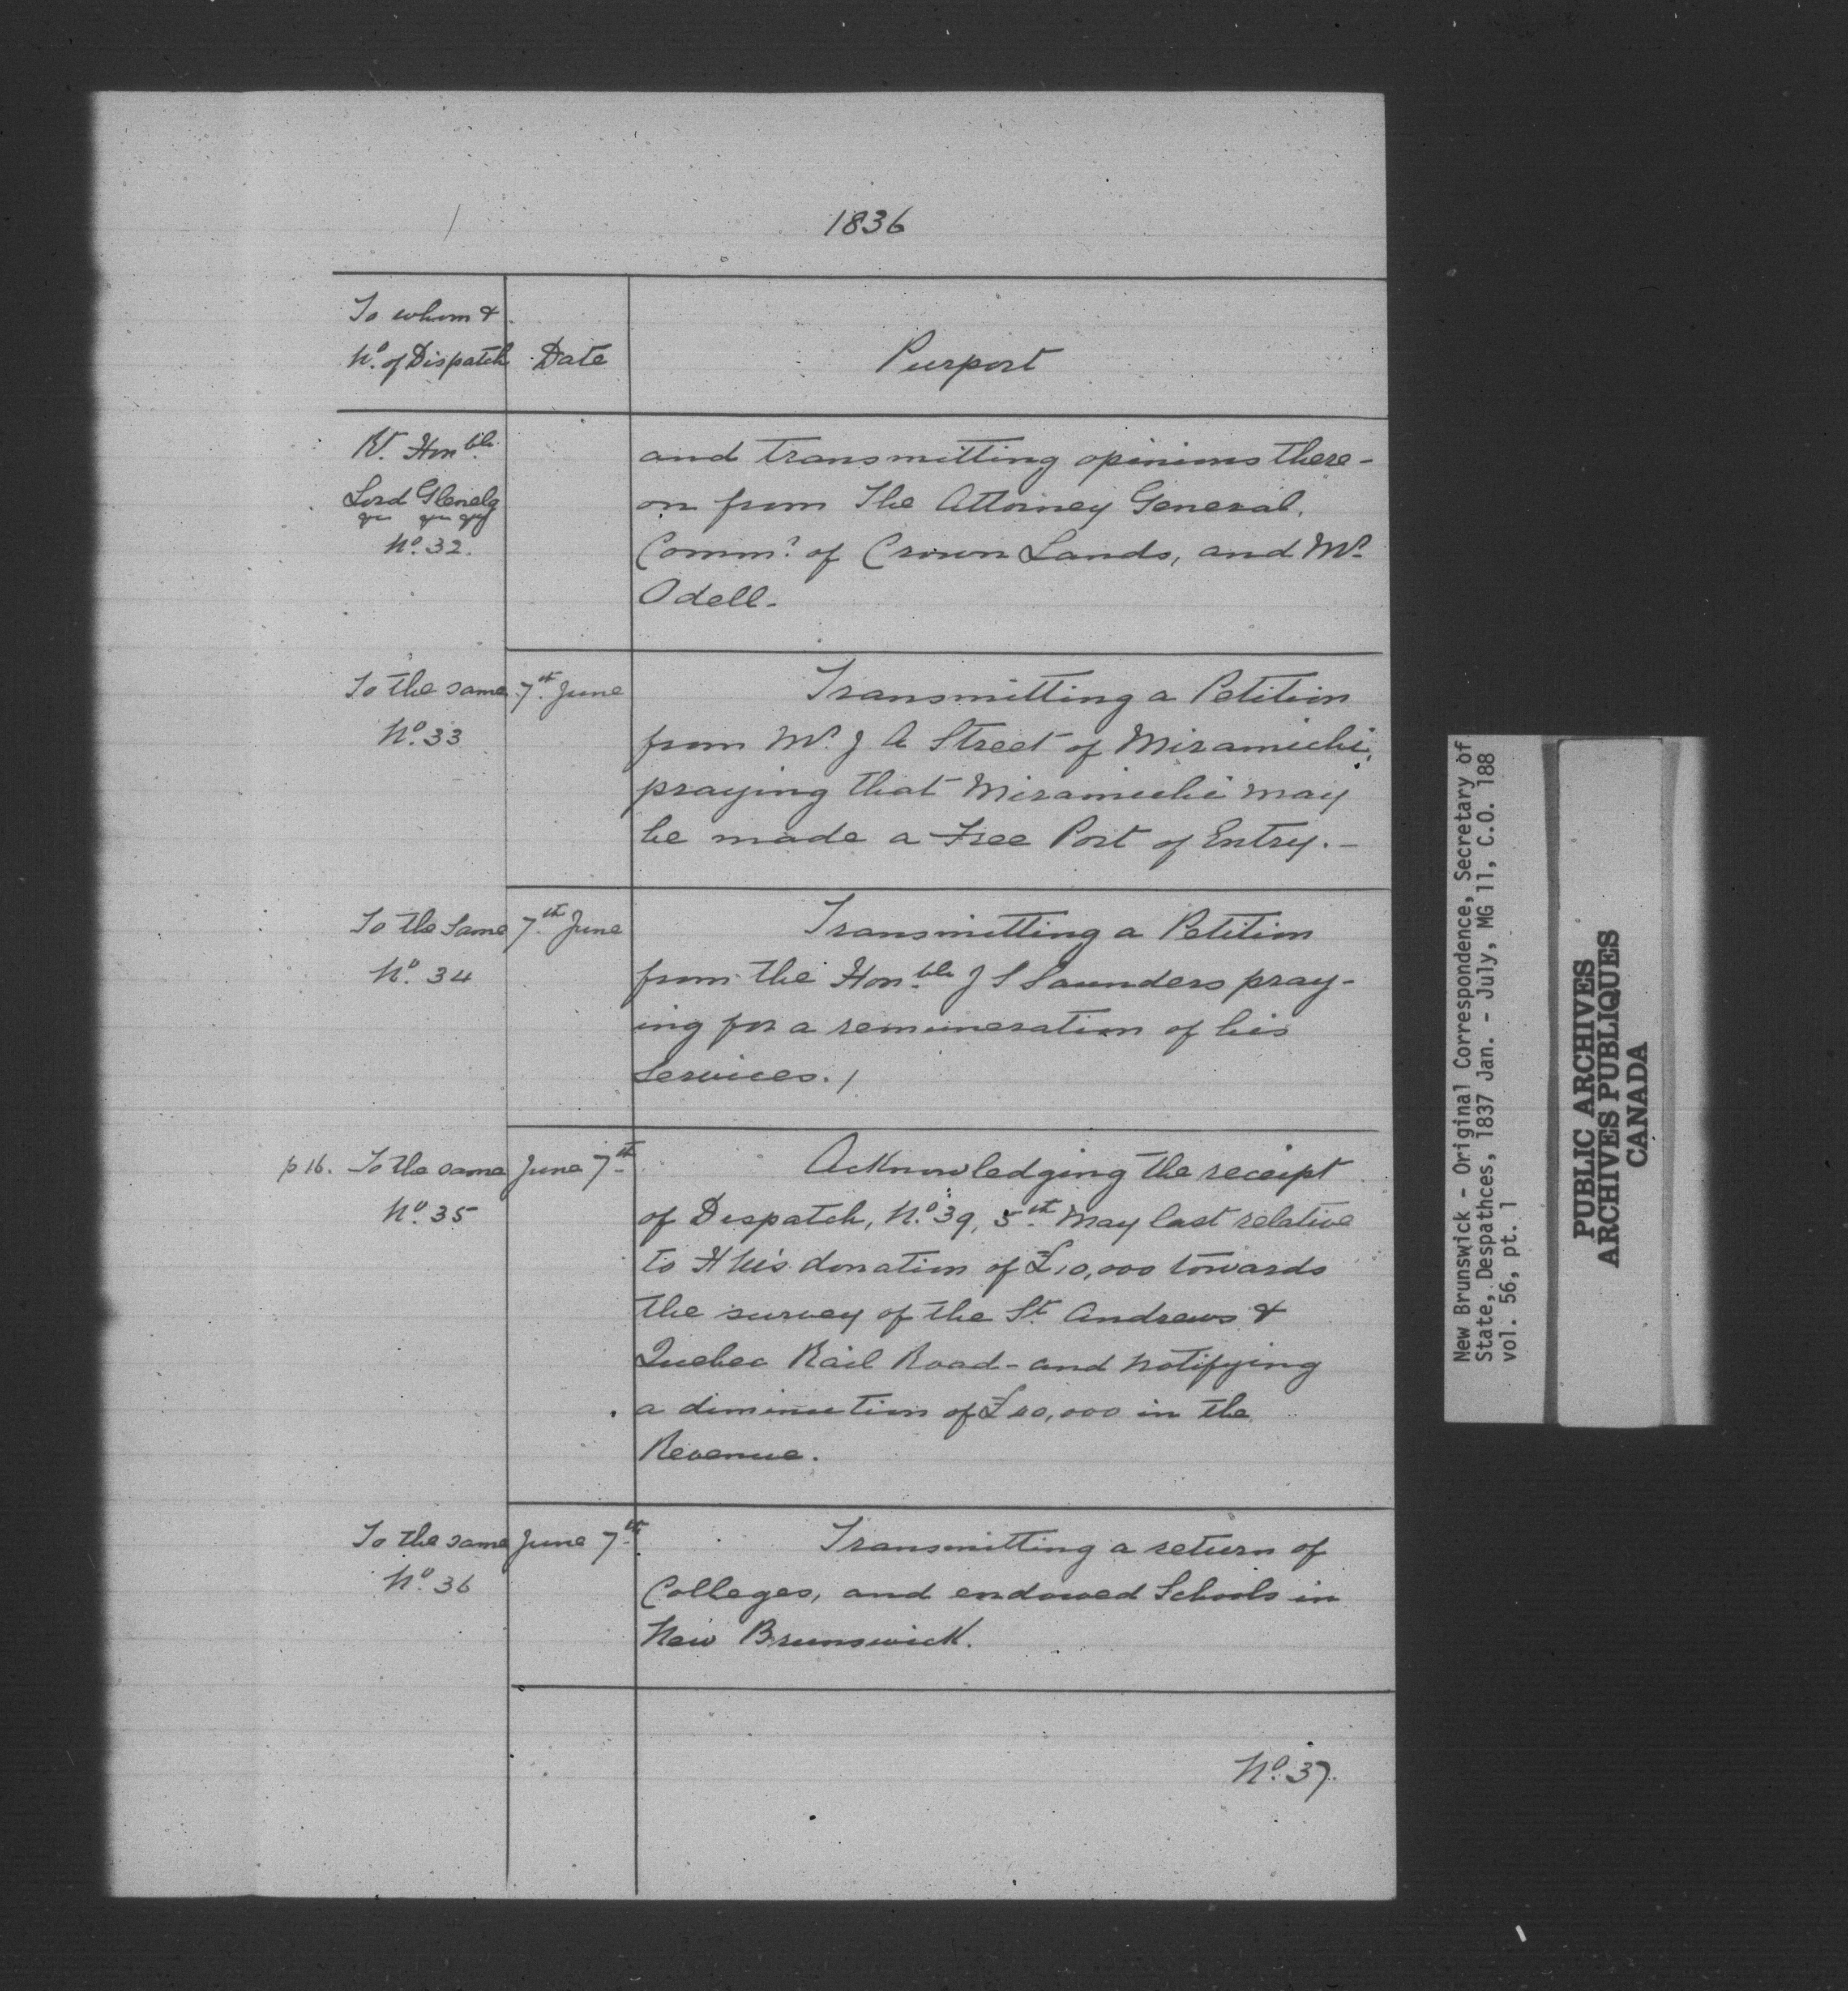 1836
To whom &
No. of Dispatch Date Purport
Rt. Honble
Lord Glenelg
No. 32.
and transmitting opinions there-
on from The Attorney General,
Commr. of Crown Lands, and Mr.
Odell-
To the same 7th June Transmitting a Petition
No. 33 from Mr. J A Street of Miramichi,
praying that Miramichi may
be made a Free Port of Entry.-
To the Same 7th June Transmitting a Petition
No. 34 from the Honble J S Saunders pray-
ing for a remuneration of his
Services. /
p 16. To the same June 7th Acknowledging the receipt
No. 35 of Despatch, No. 39, 5th May last relative
to donation of £10,000 towards
the survey of the St. Andrews &
Quebec Rail Road- and notifying
a diminution of £10,000 in the
Revenue.
To the same June 7th Transmitting a return of
No. 36 Colleges, and endowed Schools in
New Brunswick.
No. 37.
New Brunswick - Original Correspondence, Secretary of
State, Despathces, 1837 Jan. - July, MG 11, C.O. 188
vol. 56, pt. 1
PUBLIC ARCHIVES
ARCHIVES PUBLIQUES
CANADA